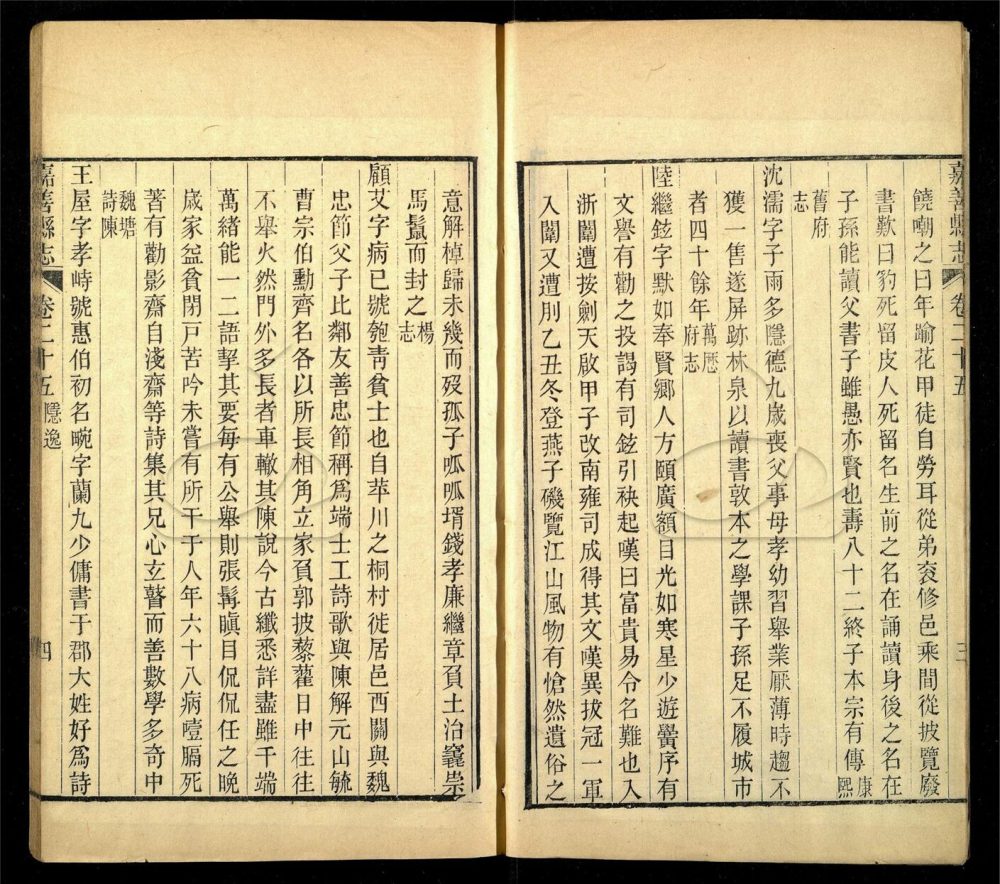 嘉善縣志 卷二十五 三
饒嘲之曰年踰花甲徒自勞耳從弟袞修邑乘間從披覽廢
書歎曰豹死留皮人死留名生前之名在誦讀身後之名在
子孫能讀父書子雖愚亦賢也壽八十二終子本宗有傳康熙
舊府志
沈濡字子雨多隱德九歲喪父事母孝幼習舉業厭薄時趨不
獲一售遂屏跡林泉以讀書敦本之學課子孫足不履城市
者四十餘年萬歷府志
陸繼鉉字默如奉賢鄉人方頤廣額目光如寒星少遊黌序有
文譽有勸之投謁有司鉉引袂起嘆曰富貴易令名難也入
浙闈遭按劍天啟甲子改南雍司成得其文嘆異拔冠一軍
入闈又遭刖乙丑冬登燕子磯覽江山風物有愴然遺俗之
意解棹歸未幾而歿孤子呱呱壻錢孝廉繼章負土治窀祟
馬鬛而封之楊志
顧艾字病已號匏靑貧士也自苹川之桐村徙居邑西關與魏
忠節父子比鄰友善忠節稱爲端士工詩歌與陳解元山毓
曹宗伯勳齊名各以所長相角立家負郭披藜藿日中往往
不舉火然門外多長者車轍其陳說今古纖悉詳盡雖千端
萬緒能一二語挈其要每有公舉則張髯瞋目侃侃任之晚
歲家益貧閉戸苦吟未嘗有所干于人年六十八病噎膈死
著有勸影齋自淺齋等詩集其兄心玄瞽而善數學多奇中
魏塘詩陳
王屋字孝峙號惠伯初名畹字蘭九少傭書于郡大姓好爲詩
嘉善縣志 卷二十五 隱逸 四